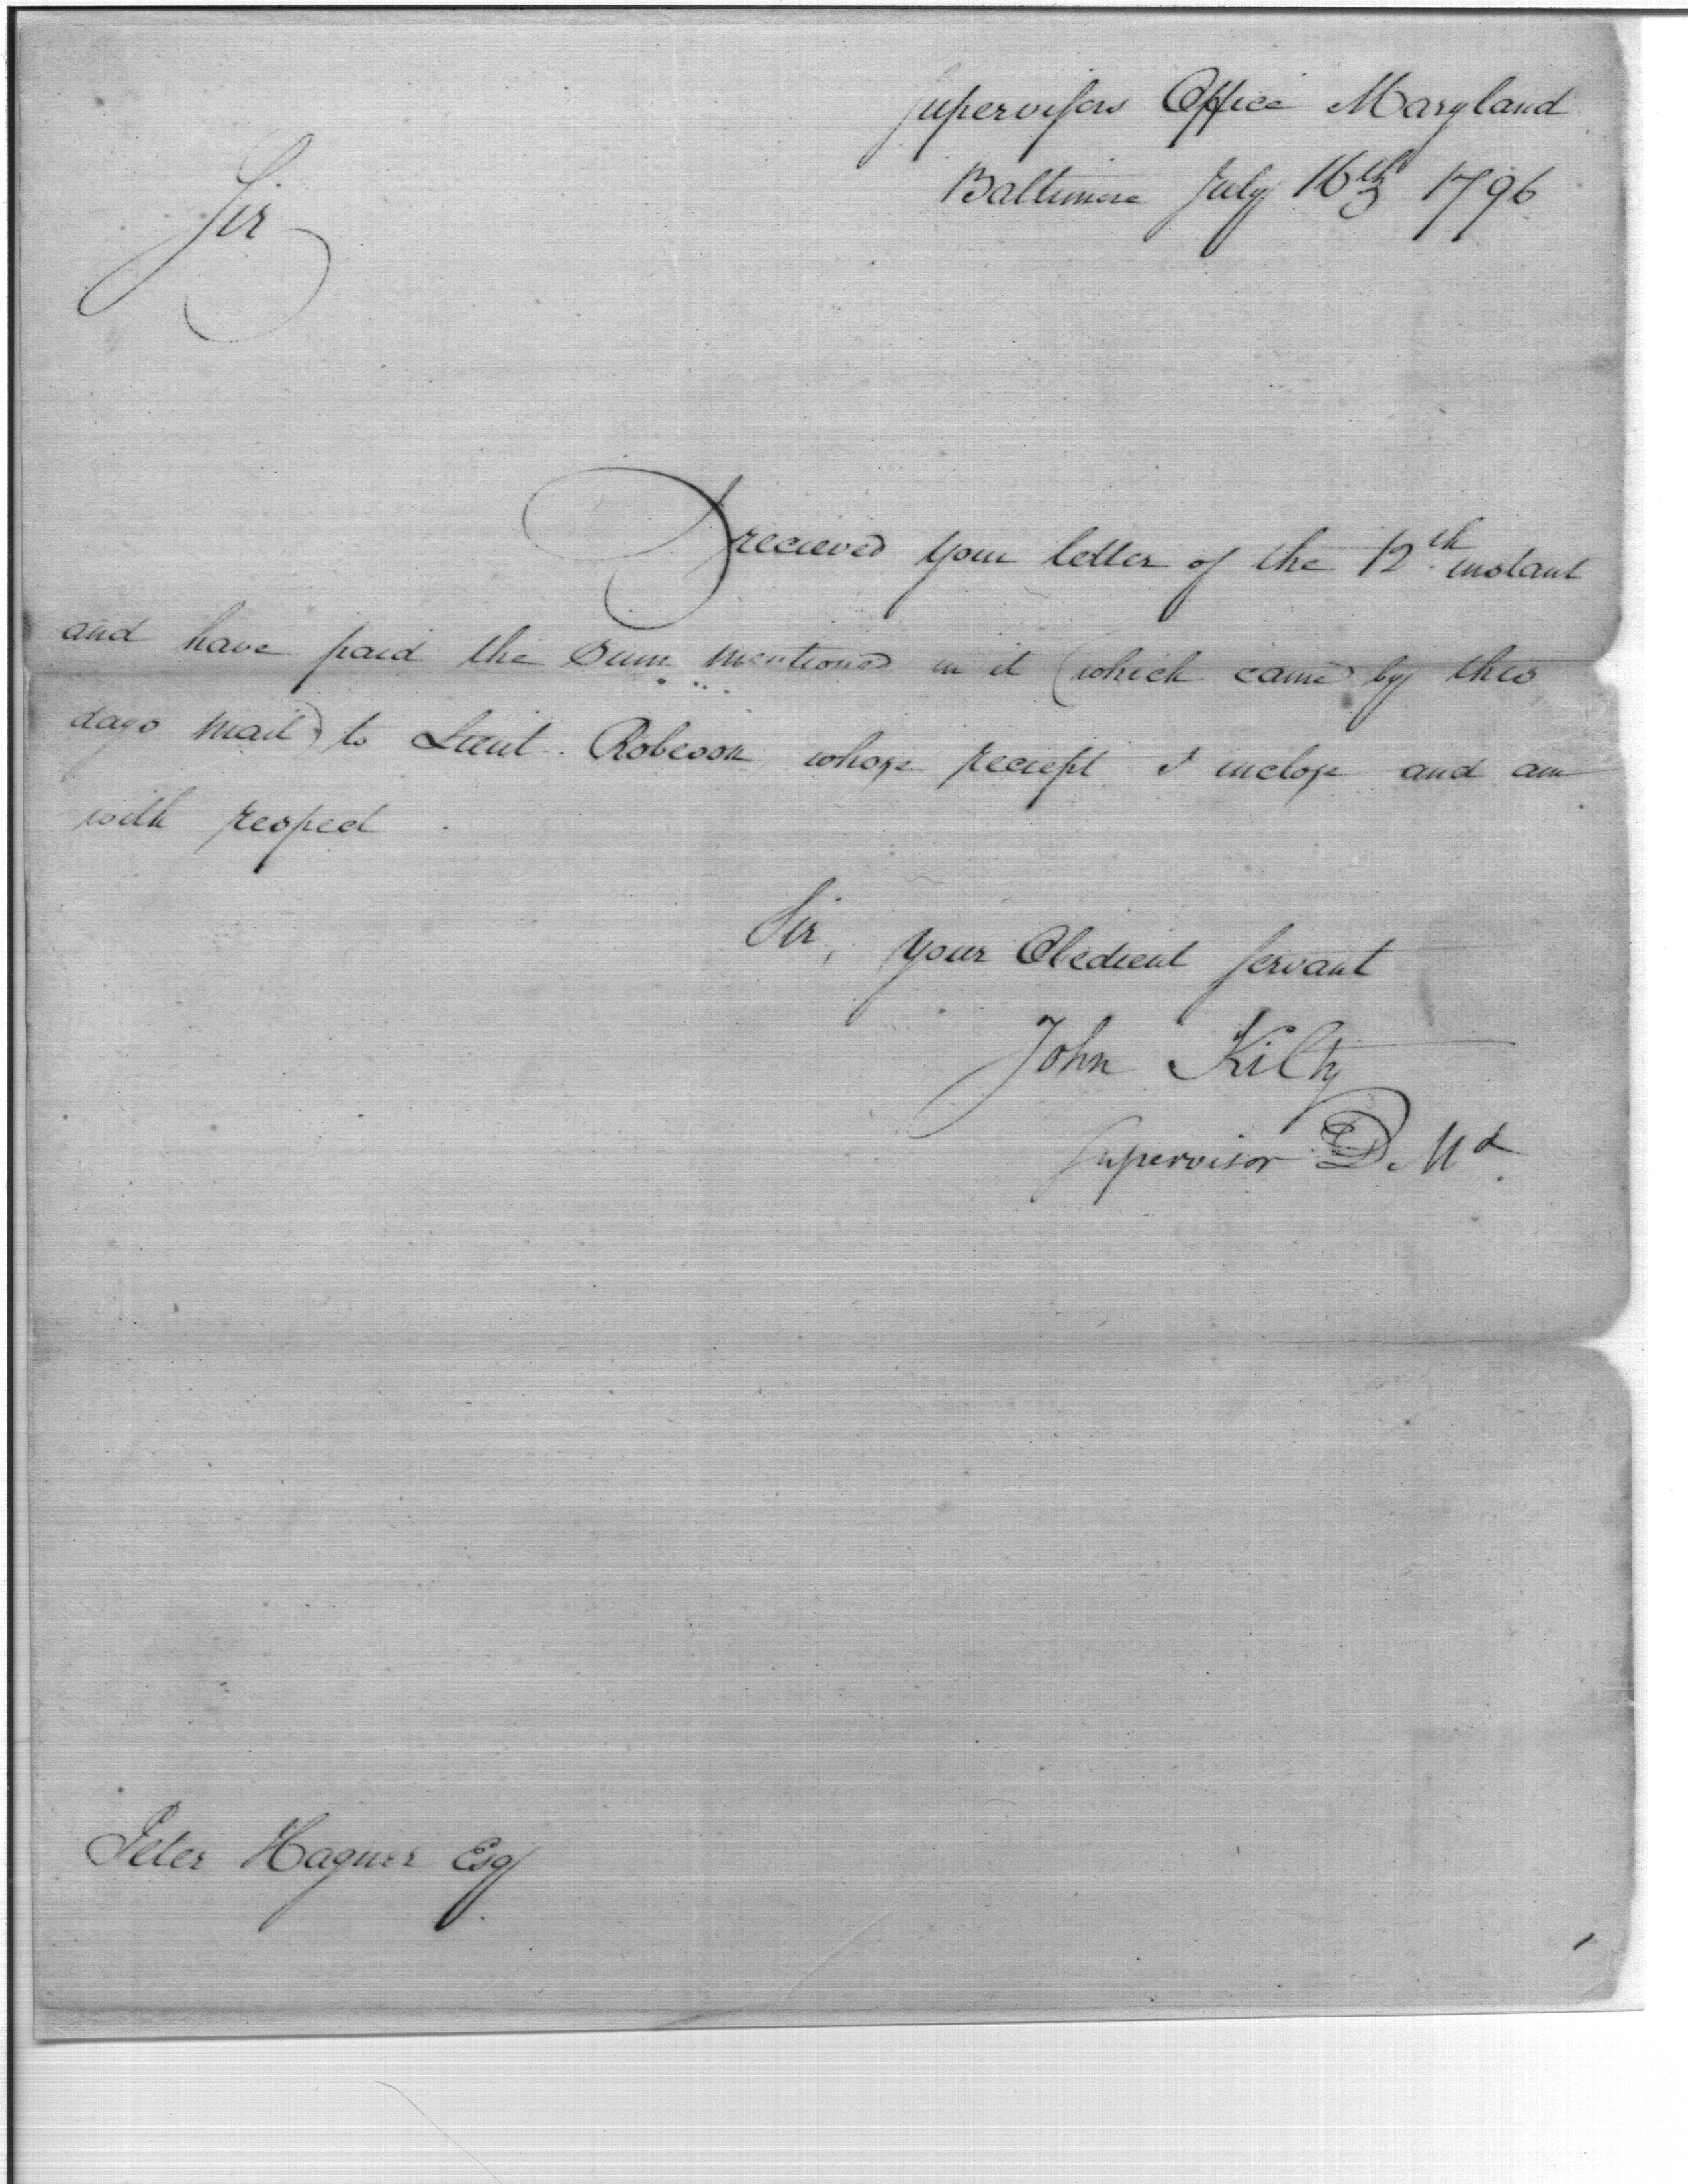 Supervisors Office Maryland
Baltimore July 16th 1796
Sir
I recieved your letter of the 12th instant
and have paid the Sum mentioned in it (which came by this
days mail) to Lieut. Robeson whose reciept I inclose and am
with respect
Sir, your Obedient Servant
John Kilty
Supervisor D Md.
Peter Hagner Esq.